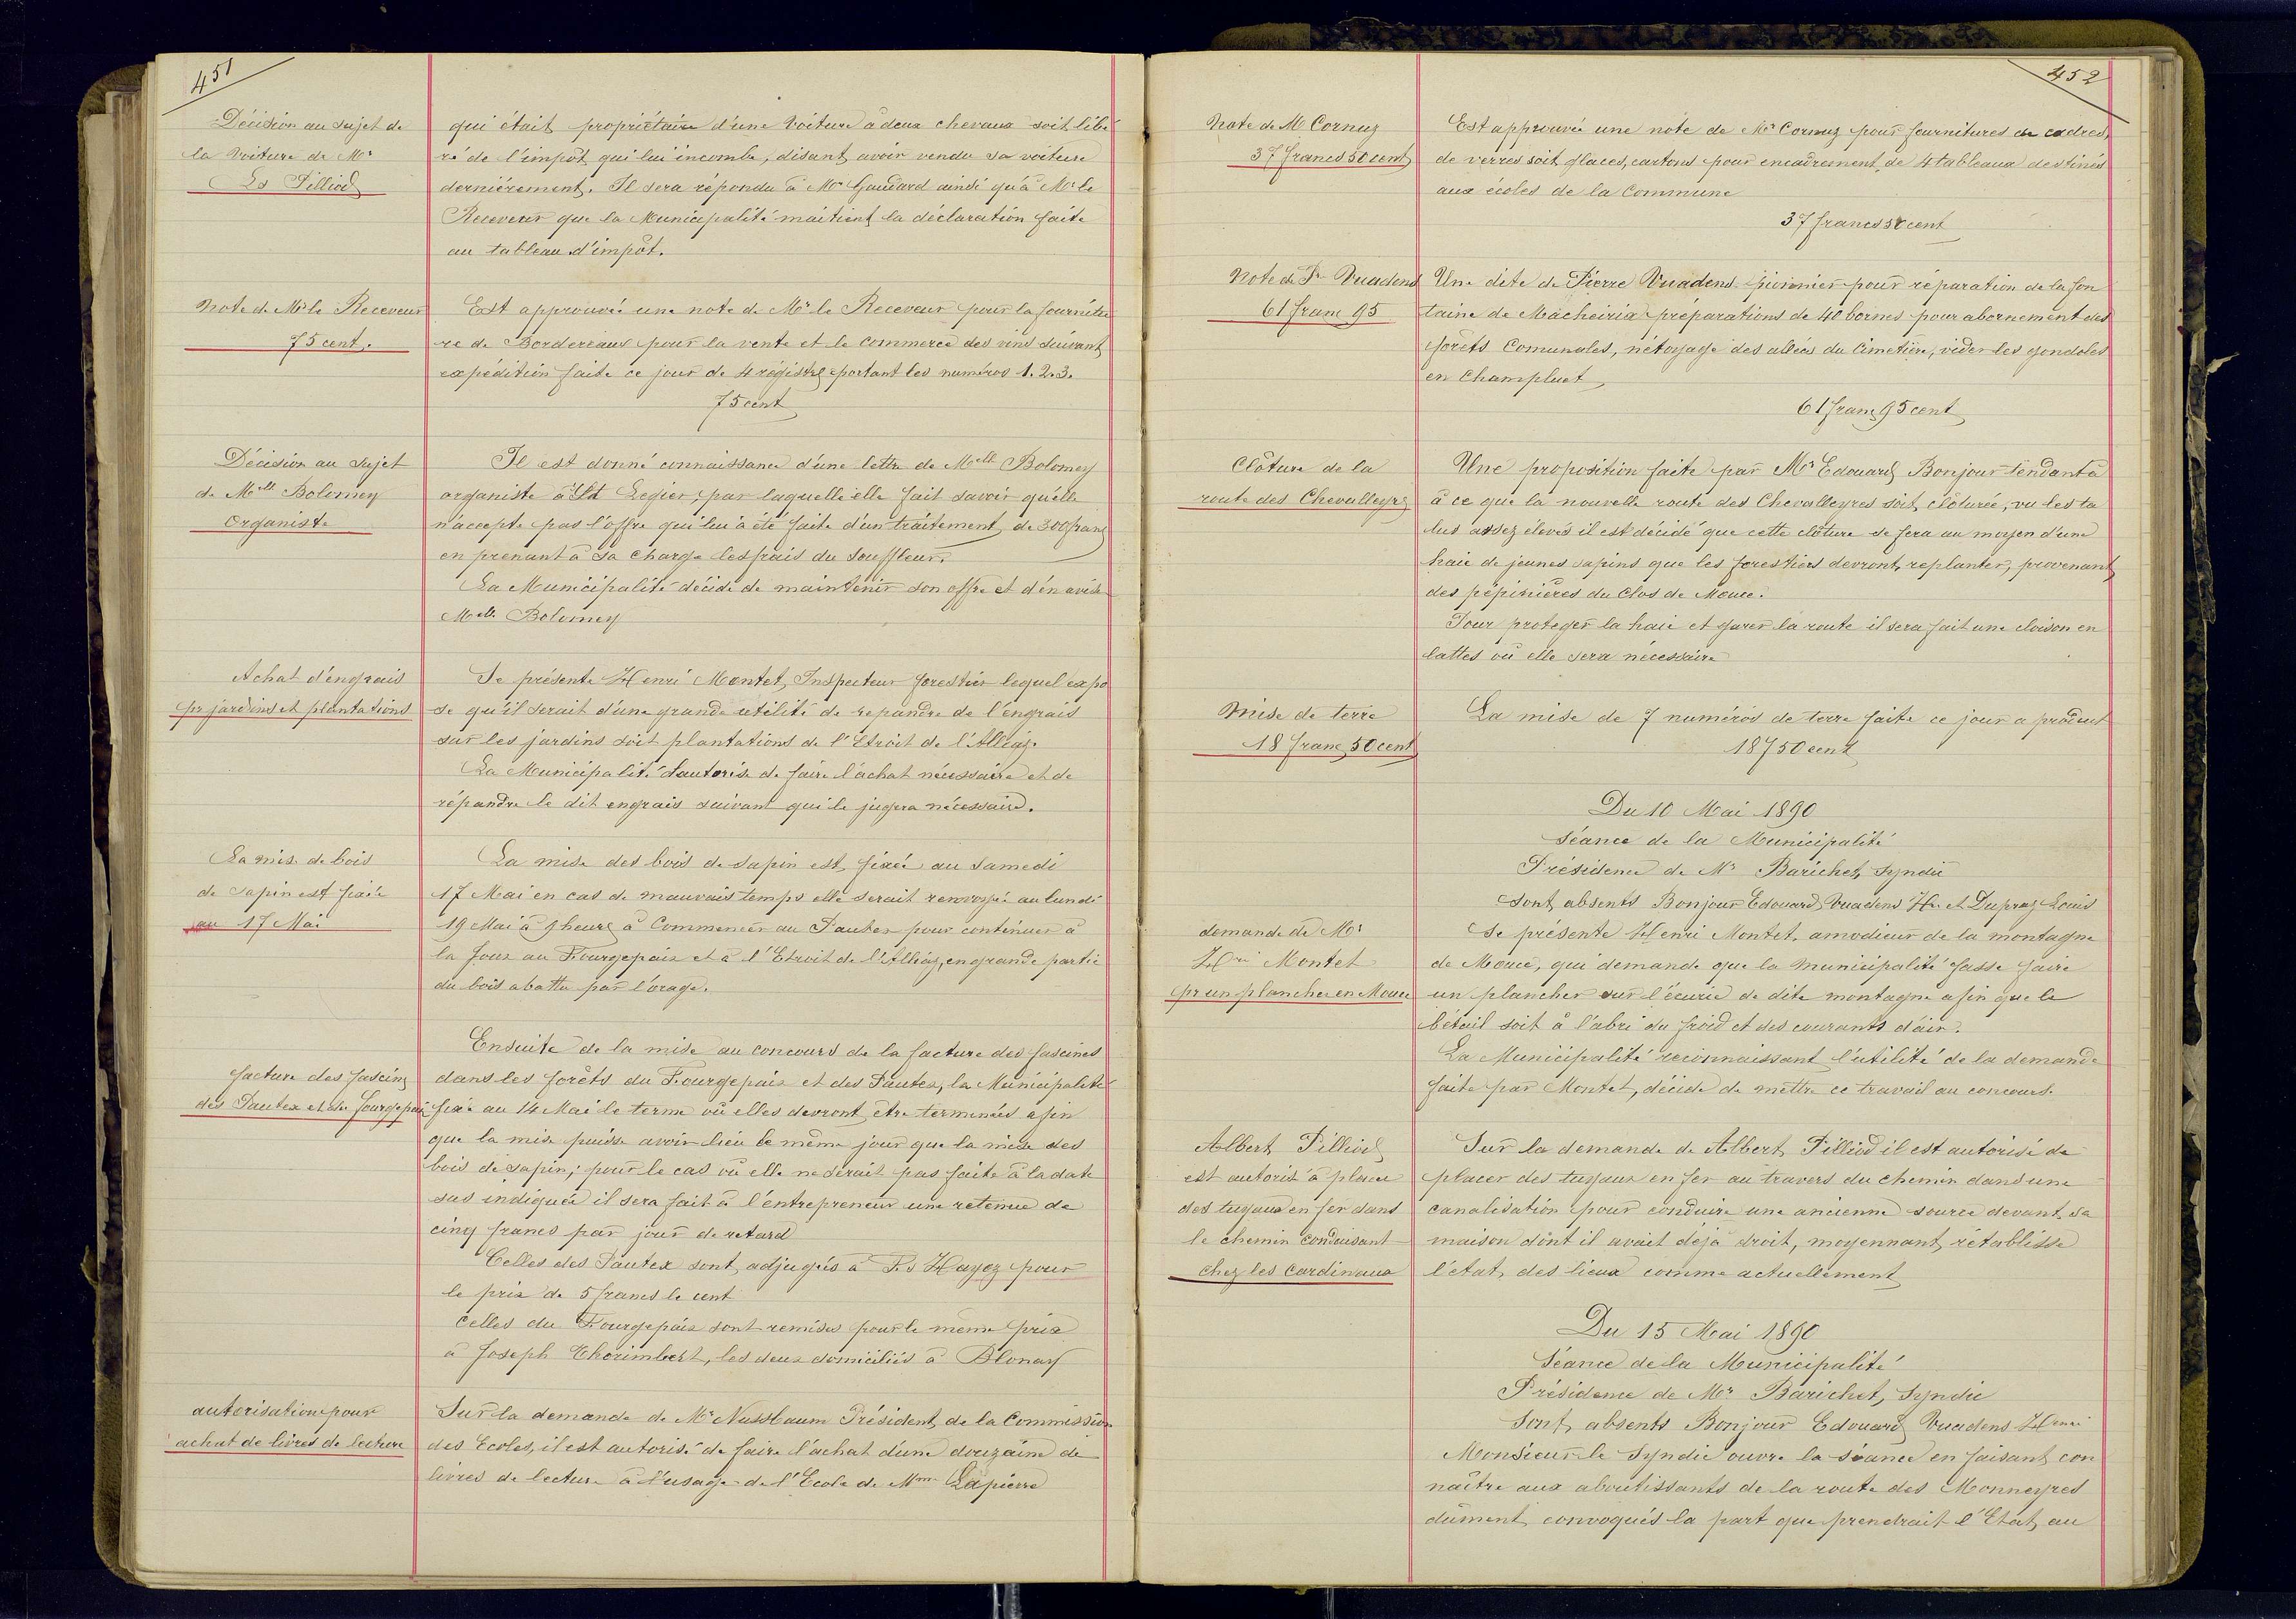 451
Décision au sujet de
la voiture de Mr
Ls Pilliod
qui était propriétaire d'une voiture à deux chevaux soit libé
ré de l'impôt qui lui incombe, disant avoir vendu sa voiture
dernièrement. Il sera répondu à Mr Gaudard ainsi qu'à Mr le
Receveur que la Municipalité maitient la déclaration faite
au tableau d'impôt.
Note de Mr le Receveur
75 cent.
Est approuvée une note de Mr le Receveur pour la fournitu
re de Bordereaux pour la vente et le commerce des vins suivant
expédition faite ce jour de 4 régistres portant les numéros 1. 2. 3.
75 cent
Décision au sujet
de Melle Bolomey
Organiste
Il est donné connaissance d'une lettre de Melle Bolomey
organiste à St Legier, par laquelle elle fait savoir qu'elle
n'accepte pas l'offre qui lui a été faite d'un traitement de 300 franc
en prenant à sa charge les frais du souffleur.
La Municipalité décide de maintenir son offre et d'en aviser
Melle Bolomey
Achat d'engrais
pr jardins et plantations
Se présente Henri Montet, Inspecteur forestier lequel expo
se qu'il serait d'une grande utilité de repandre de l'engrais
sur les jardins soit plantations de l'Etroit de l'Alliaz.
La Municipalité l'autorise de faire l'achat nécessaire et de
répandre le dit engrais suivant qui le jugera nécessaire.
La mise de bois
de sapin est fixée
au 17 Mai
La mise des bois de sapin est fixée au Samedi
17 Mai en cas de mauvais temps elle serait renvoyée au lundi
19 Mai à 9 heures à Commencer au Pautex pour continuer à
la Joux au Fourgepaix et à l'Etroit de l'Alliaz, en grande partie
du bois abattu par l'orage.
facture des fascines
des Pautex et du fourgepaix
Ensuite de la mise au concours de la facture des fascines
dans les forêts du Fourgepaix et des Pautex, la Municipalité
fixe au 14 Mai le terme où elles devront être terminées afin
que la mise puisse avoir lieu le même jour que la mise des
bois de sapin; pour le cas où elle ne serait pas faite à la date
sus indiquée il sera fait à l'entrepreneur une retenue de
cinq francs par jour de retard
Celles des Pautex sont adjugés à Fs Hayoz pour
le prix de 5 francs le cent
Celles du Fourgepaix sont remises pour le même prix
à Joseph Thorimbert, les deux domiciliés à Blonay
autorisation pour
achat de livres de lecture
Sur la demande de Mr Nussbaum Président de la Commission
des Ecoles, il est autorisé de faire l'achat d'une douzaine de
livres de lecture à l'usage de l'Ecole de Mme Lapierre
452
Note de M Cornuz
37 francs 50 cent
Est approuvée une note de Mr Cornuz pour fournitures de cadres,
de verres soit glaces, cartons pour encadrement de 4 tableaux destinés
aux écoles de la Commune
37 francs 50 cent
Note de Pr Vuadens
61 franc 95
Une dite de Pierre Vuadens pionnier pour réparation de la fon
taine de Macheiria préparations de 40 bornes pour abornement des
forêts Comunales, nétoyage des allées du Cimetière, vider les gondoles
en Champluet
61 franc 95 cent
Clôture de la
route des Chevalleyres
Une proposition faite par Mr Edouard Bonjour tendant à
à ce que la nouvelle route des Chevalleyres soit clôturée, vu les ta
lus assez élevés il est décidé que cette clôture se fera au moyen d'une
haie de jeunes sapins que les forestiers devront replanter, provenant
des pépinières du Clos de Mouce.
Pour proteger la haie et garer la route il sera fait une cloison en
lattes où elle sera nécessaire
Mise de terre
18 franc 50 cent
La mise de 7 numéros de terre faite ce jour a produit
18f 50 cent
Du 10 Mai 1890
Séance de la Municipalité
Présidence de Mr Barichet, Syndic
Sont absents Bonjour Edouard, Vuadens Hri et Dupraz Louis
demande de Mr
Hri Montet
pr un plancher en Mouce
Se présente Henri Montet, amodieur de la montagne
de Mouce, qui demande que la Municipalité fasse faire
un plancher sur l'écurie de dite montagne afin que le
bétail soit à l'abri du froid et des courants d'air.
La Municipalité reconnaissant l'utilité de la demande
faite par Montet, décide de mettre ce travail au concours.
Albert Pilliod
est autorisé à placer
des tuyaux en fer dans
le chemin conduisant
chez les Cardinaux
Sur la demande de Albert Pilliod il est autorisé de
placer des tuyaux en fer au travers du chemin dans une
canalisation pour conduire une ancienne source devant sa
maison dont il avait déjà droit, moyennant rétablisse
l'état des lieux comme actuellement
Du 15 Mai 1890
Séance de la Municipalité
Présidence de Mr Barichet, Syndic
Sont absents Bonjour Edouard, Vuadens Henri
Monsieur le Syndic ouvre la séance en faisant con
naître aux aboutissants de la route des Monneyres
dûment convoqués la part que prendrait l'Etat au